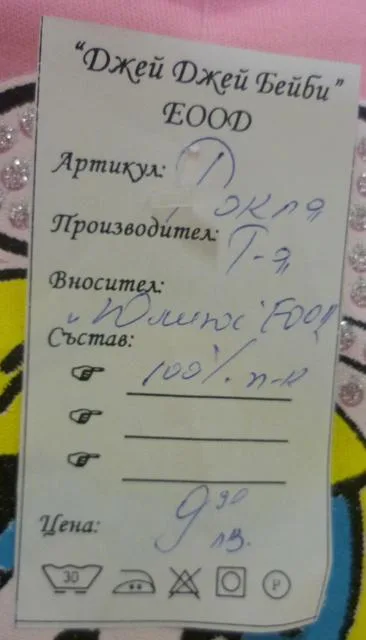 "Джей Джей Бейби"
ЕООД
Артикул: 1
окля
Производител: Т-я
Вносител:
"Юлиюс" ЕООД
Състав:
100% п-к
Цена: 9 90
лв.
30
P